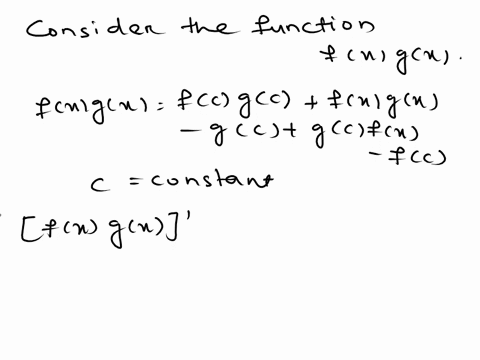 Consider the function
f(x) g(x).
f(x)g(x) = f(c) g(c) + f(x)g(x)
- g(c) + g(c)f(x)
- f(c)
c = constant
[f(x) g(x)]'